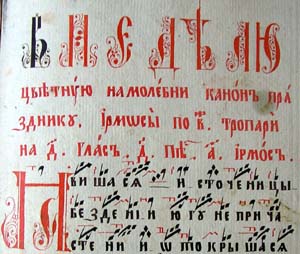 В НЕДѢЛЮ
цвѣтнꙋю на молебни канон пра
зднику. ірмосы по в҃. тропари
на д҃. глас д҃. пѣс а҃. ірмос.
Ꙗвишася и сточеницы
безденіи югу не прича
стени и ѿкрышася